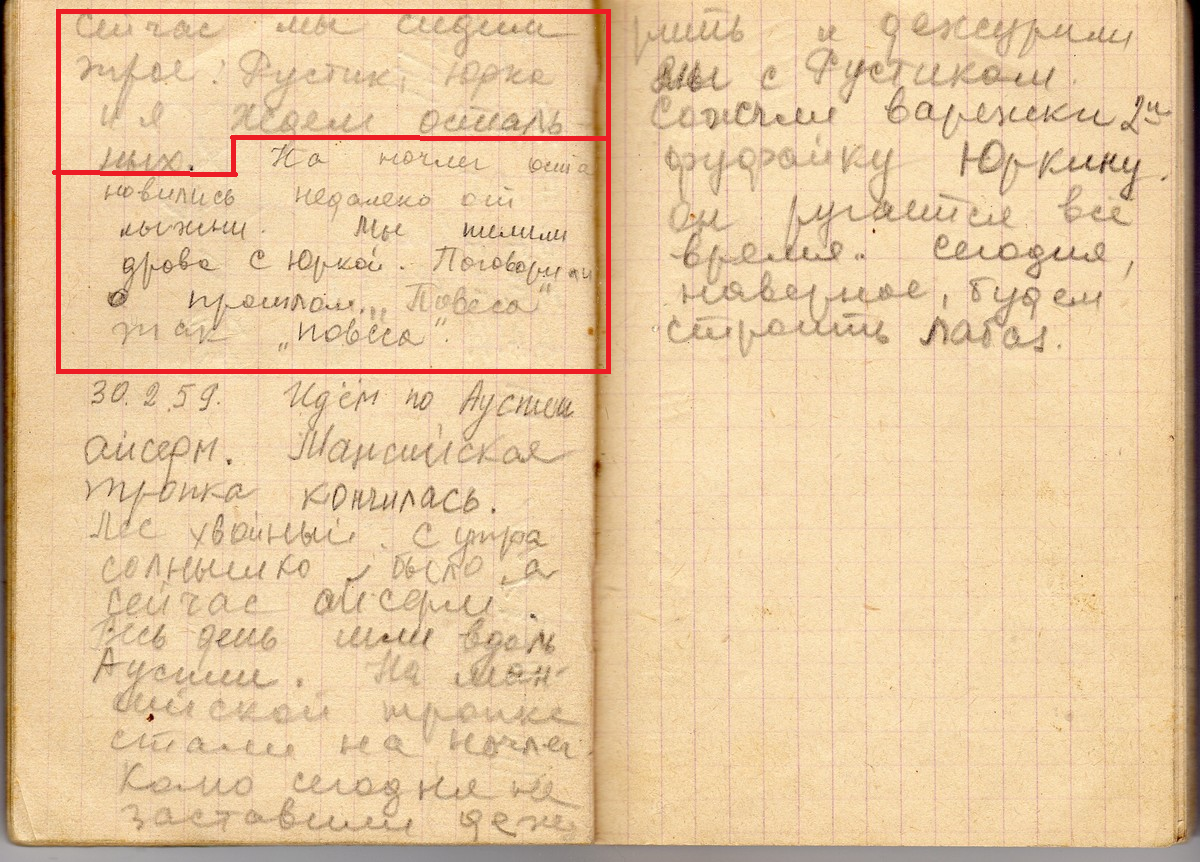 сейчас мы сидим
трое: Рустик, Юрка
и я Ждем осталь-
ных. На ночлег оста
новились недалеко от
лыжни. Мы пилили
дрова с Юркой. Поговорили
о прошлом. „Повеса"
так „повёса".
30.2.59. Идём по Ауспии
айсерм. Мансийская
тропка кончилась.
Лес хвойный. С утра
солнышко было, а
сейчас айсерм.
Весь день шли вдоль
Ауспии. На ман-
сийской тропке
стали на ночлег.
Колю сегодня не
заставили дежу
рить и дежурили
мы с Рустиком.
Сожгли варежки 2ую
фуфайку Юркину.
Он ругается всё
время. Сегодня,
наверное, будем
строить лабаз.